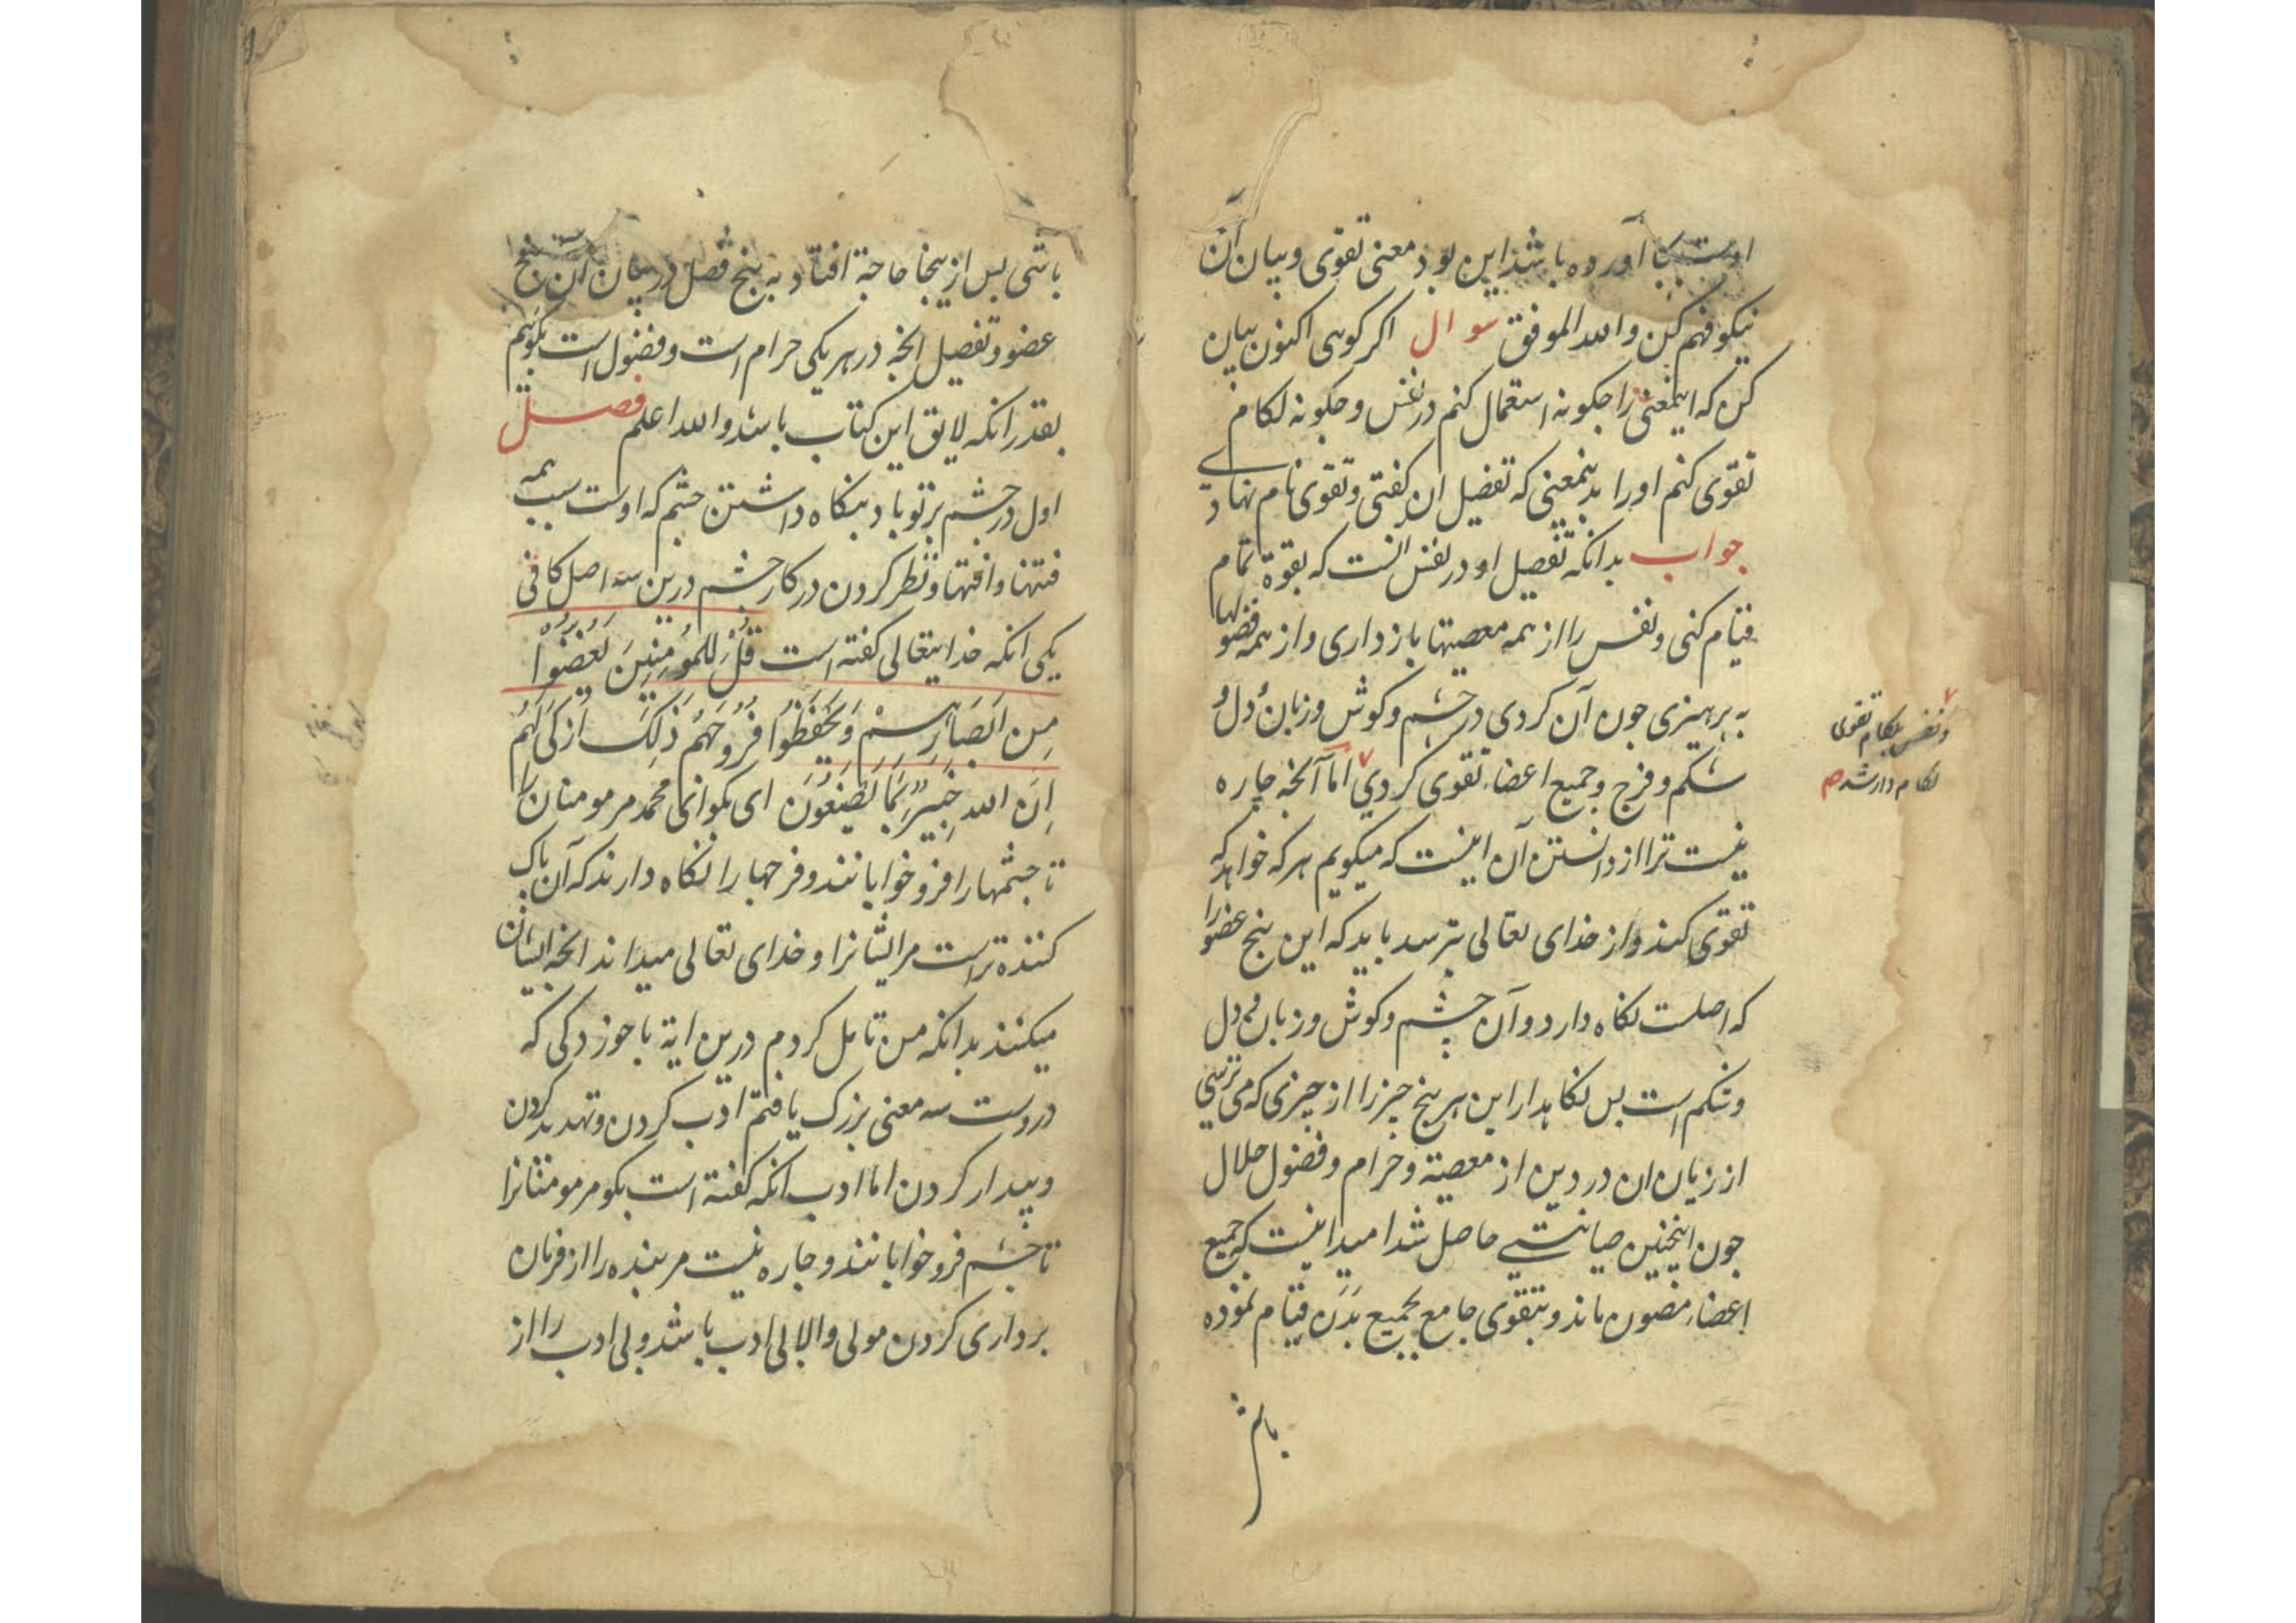 آورده باشد این بود معنی تقوی و بیان آن
نیکو فهم کن والله الموفق سوال اکر کوی اکنون بیان
کن که اینمعنی را جکونه استعمال کنم در نفس و جکونه لکام
تقوی کنم اورا بدینمعنی که تفصیل ان کفتی و تقوی نام نهادی
جواب بدانکه تفصیل او در نفس انست که بقوة تمام
قیام کنی و نفس را از همه معصیتها باز داری و از همه فضولها
به برهیزی جون آن کردی در جشم و کوش و زبان و دل و
شکم و فرج و جمیع اعضاء تقوی کردی اما آنجه جاره
نیست ترا از دانستن آن اینست که میکویم هر که خواهد که
تقوی کند و از خدای تعالی بترسد باید که این بنج عضو را
که اصلست نکاه دارد و آن جشم و کوش و زبان و دل
و شکم است بس نکاهدار این هر بنج جیز را از جیزی که می ترسی
از زیان ان در دین از معصیة و حرام و فضول حلال
جون اینجنین صیانتی حاصل شد امید اینست که جمیع
اعضاء مصون ماند و بتقوی جامع بجمیع بدن قیام نموده
باشی
و نفس بلکام تقوی
لکام دار شد صح
باشی بس از ینجا حاجة افتاد به بنج فصل در بیان آن بنج
عضو و تفصیل انجه در هر یکی حرام است و فضول است بکوئیم
بقدر انکه لایق این کتاب باشد والله اعلم فصل
اول در جشم بر تو باد بنکاه داشتن جشم که اوست سبب همه
فتنها و افتها و نظر کردن در کار جشم درین سه اصل کافی
یکی انکه خدایتعالی کفته است قُلْ لِلمُؤمِنِینَ یَغُضُّوْا
مِن اَبْصَارِهِمْ وَ یَحْفَظُوا فُرُوْجَهُم ذَلِکَ اَزْکَی لَهُم
اِنَ الله خَبِیْرٌ بِمَا یَصْنَعُوْنَ ای بکو انمی محمد مر مومنان را
تا جشمها را فرو خوابانند و فرجها را نکاه دارند که آن باک
کننده تر است مر ایشانرا و خدای تعالی میداند انجه ایشان
میکنند بدانکه من تامل کردم درین ایة با جوزدکی که
دروست سه معنی بزرک یافتم ادب کردن و تهدید کردن
و بیدار کردن اما ادب انکه کفته است بکو مر مومنانرا
تا جشم فرو خوابانند و جاره نیست مر بنده را از فرمان
برداری کردن مولی و الا بی ادب باشد و بی ادب را از